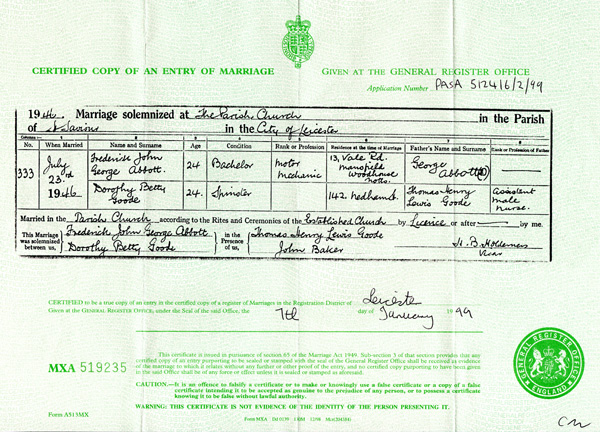 CERTIFIED COPY OF AN ENTRY OF MARRIAGE GIVEN AT THE GENERAL REGISTER OFFICE
Application Number PASA 512416/2/99
1946. Marriage solemnized at The Parish Church in the Parish
of St Saviour in the City of Leicester
Columns:— 1 2 3 4 5 6 7 8
No. When Married Name and Surname Age Condition Rank or Profession Residence at the time of Marriage Father's Name and Surname Rank or Profession of Father
333 July 23rd 1946 Frederick John George Abbott. 24 Bachelor motor mechanic 13, Vale Rd. mansfield woodhouse notts. George Abbott (D)
Dorothy Betty Goode 24. Spinster 142. Thomas Henry Lewis Goode assistant male nurse.
Married in the Parish Church according to the Rites and Ceremonies of the Established Church by Licence or after by me.
This Marriage was solemnized between us, Frederick John George Abbott Dorothy Betty Goode in the Presence of us, Thomas Henry Lewis Goode John Baker
Vicar
CERTIFIED to be a true copy of an entry in the certified copy of a register of Marriages in the Registration District of Leicester
Given at the GENERAL REGISTER OFFICE, under the Seal of the said Office, the 7th day of January 1999
MXA 519235
This certificate is issued in pursuance of section 65 of the Marriage Act 1949. Sub-section 3 of that section provides that any
certified copy of an entry purporting to be sealed or stamped with the seal of the General Register Office shall be received as evidence
of the marriage to which it relates without any further or other proof of the entry, and no certified copy purporting to have been given
in the said Office shall be of any force or effect unless it is sealed or stamped as aforesaid.
CAUTION:—It is an offence to falsify a certificate or to make or knowingly use a false certificate or a copy of a false
certificate intending it to be accepted as genuine to the prejudice of any person, or to possess a certificate
knowing it to be false without lawful authority.
WARNING: THIS CERTIFICATE IS NOT EVIDENCE OF THE IDENTITY OF THE PERSON PRESENTING IT.
Form A513MX
GENERAL REGISTER OFFICE
ENGLAND